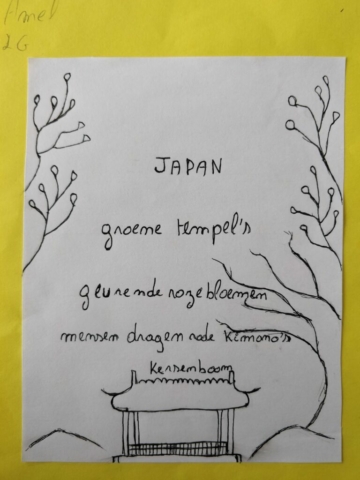 Amel
2G
JAPAN
groene tempel's
geurende roze bloemen
mensen dragen rode Kimono's
Kersenboom